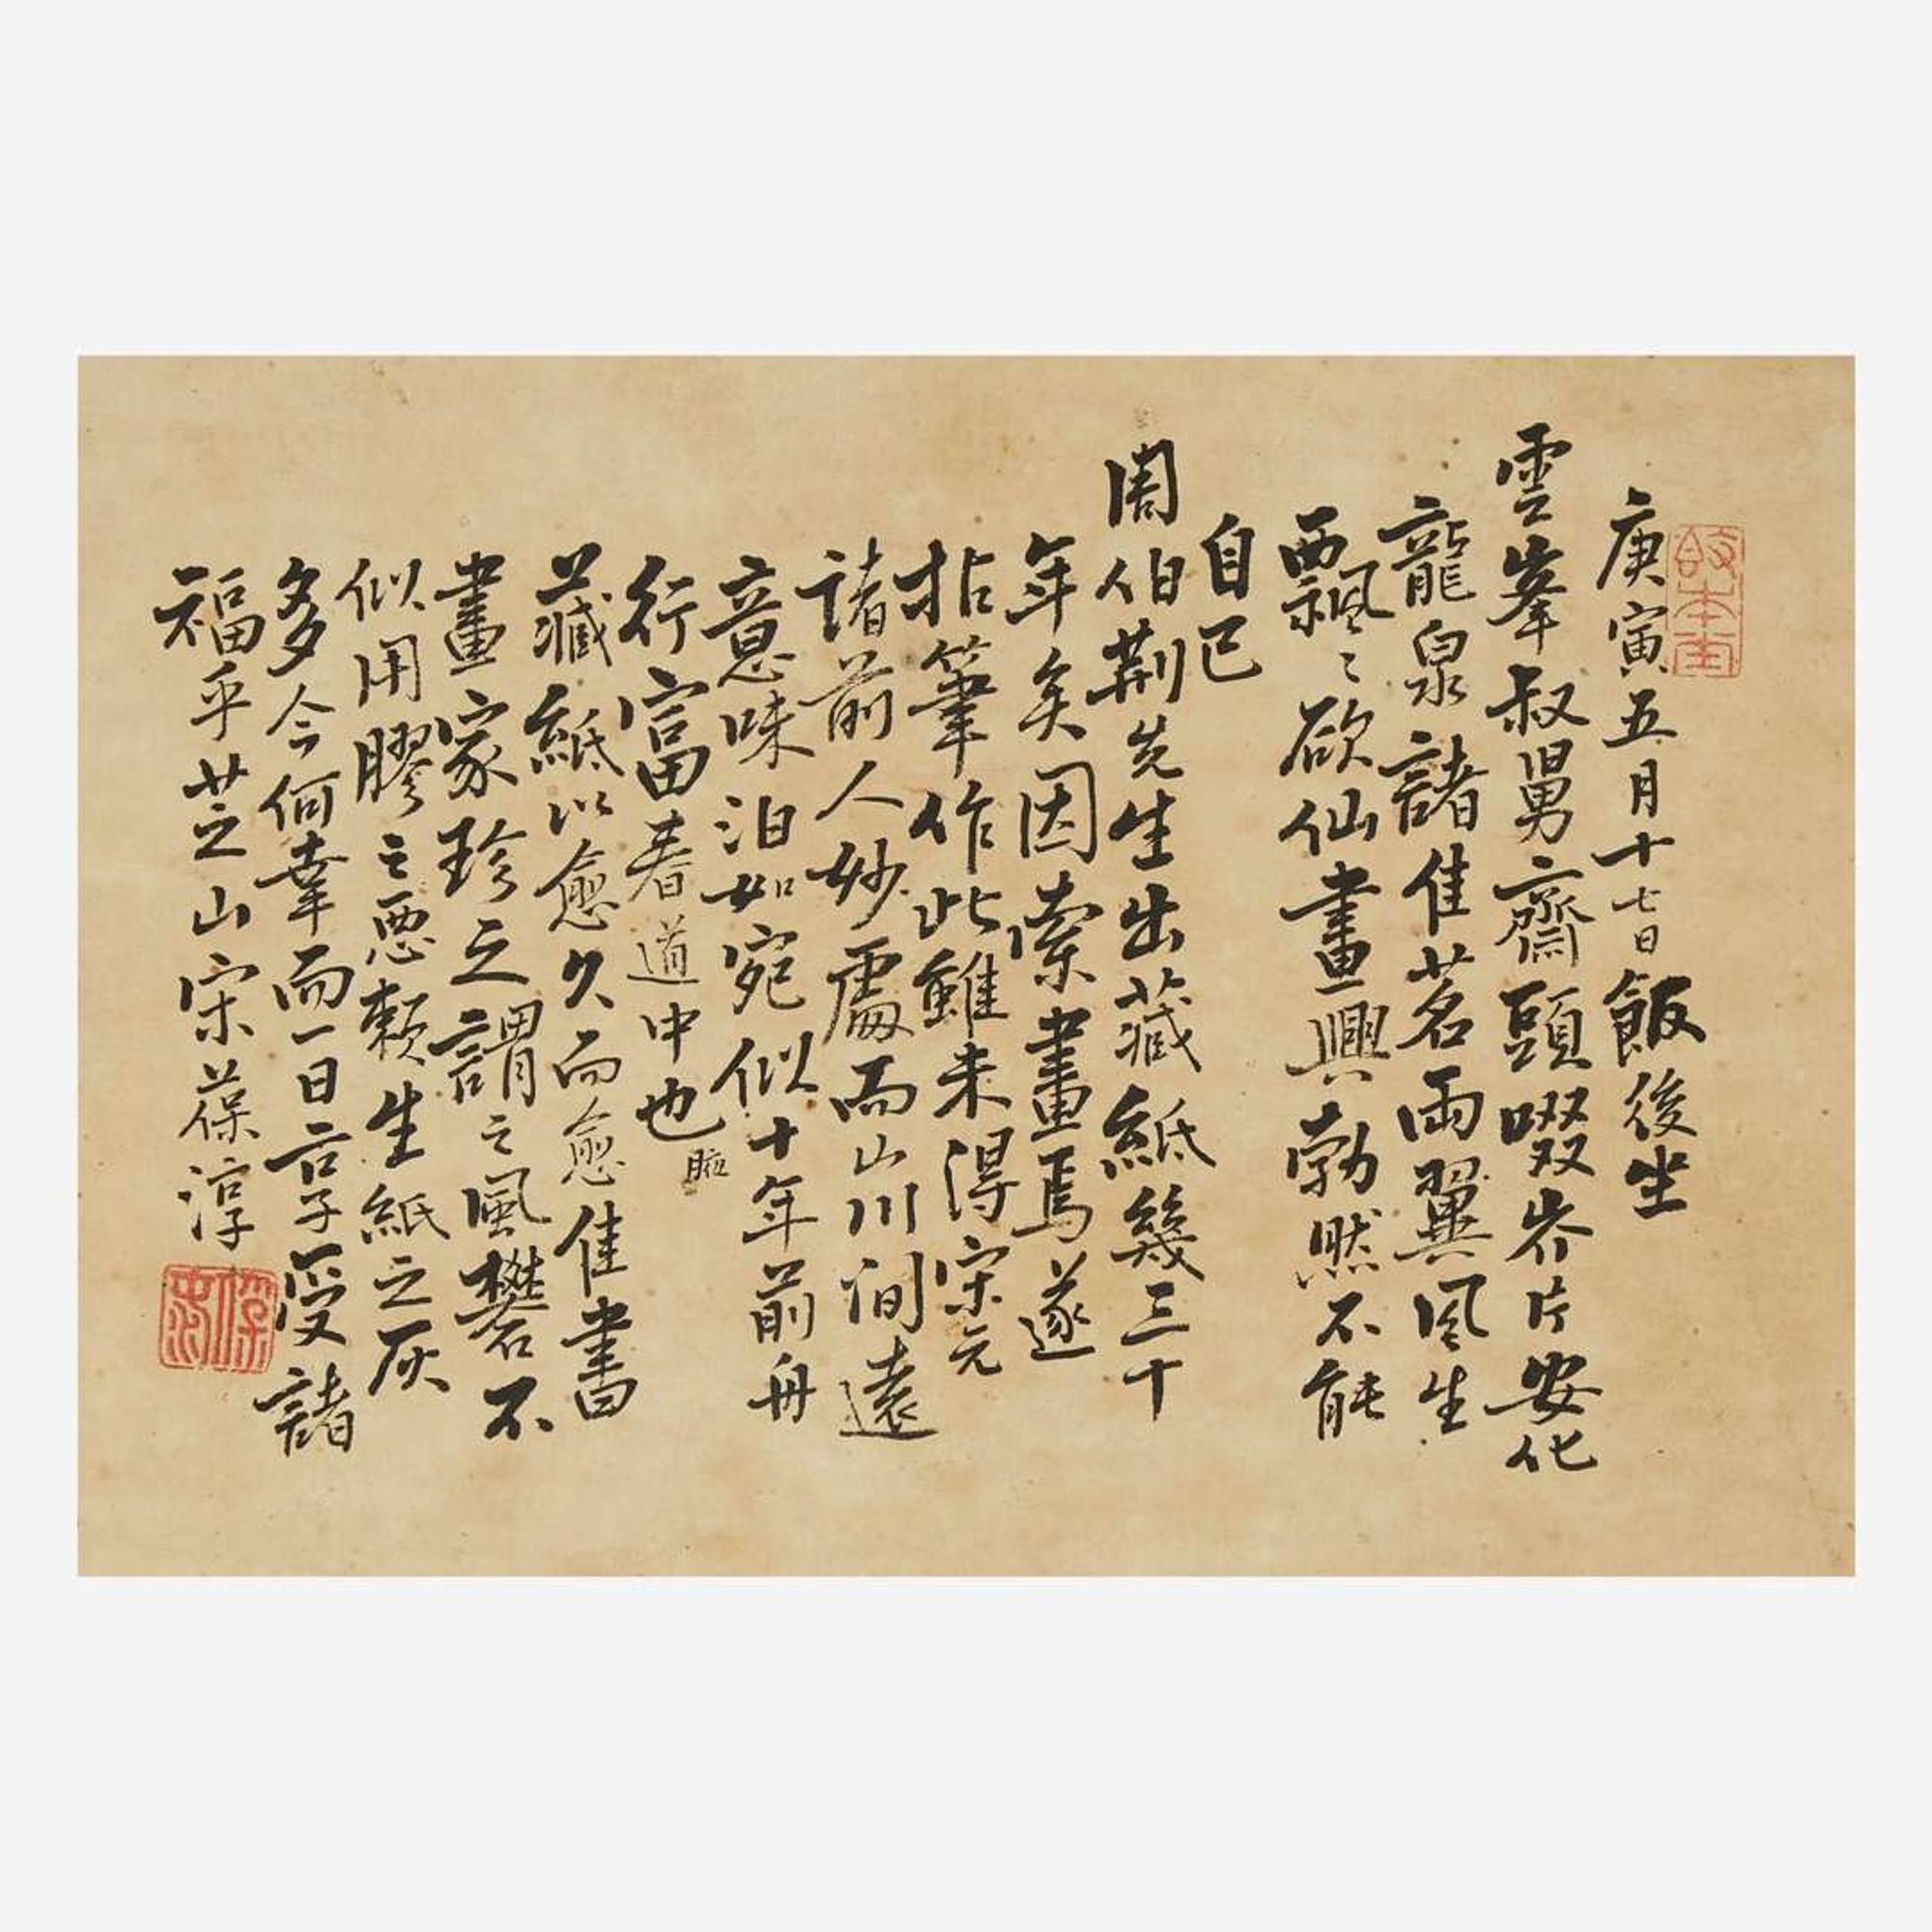 庚寅五月十七日飯後坐
雲峯叔舅齋頭啜岕片安化
龍泉諸佳茗兩翼風生
飄〻欲仙畫興勃然不能
自已
周伯荆先生出藏紙幾三十
年矣因索畫焉遂
拈筆作此雖未得宋元
諸前人妙處而山川澗遠
意味泊如宛似十年前舟
行富春道中也
藏紙以愈久而愈佳書
畫家珍之謂之風礬不
似用膠之惡賴生紙之灰
多今何幸而一日享受諸
福乎芝山宋葆淳
葆淳